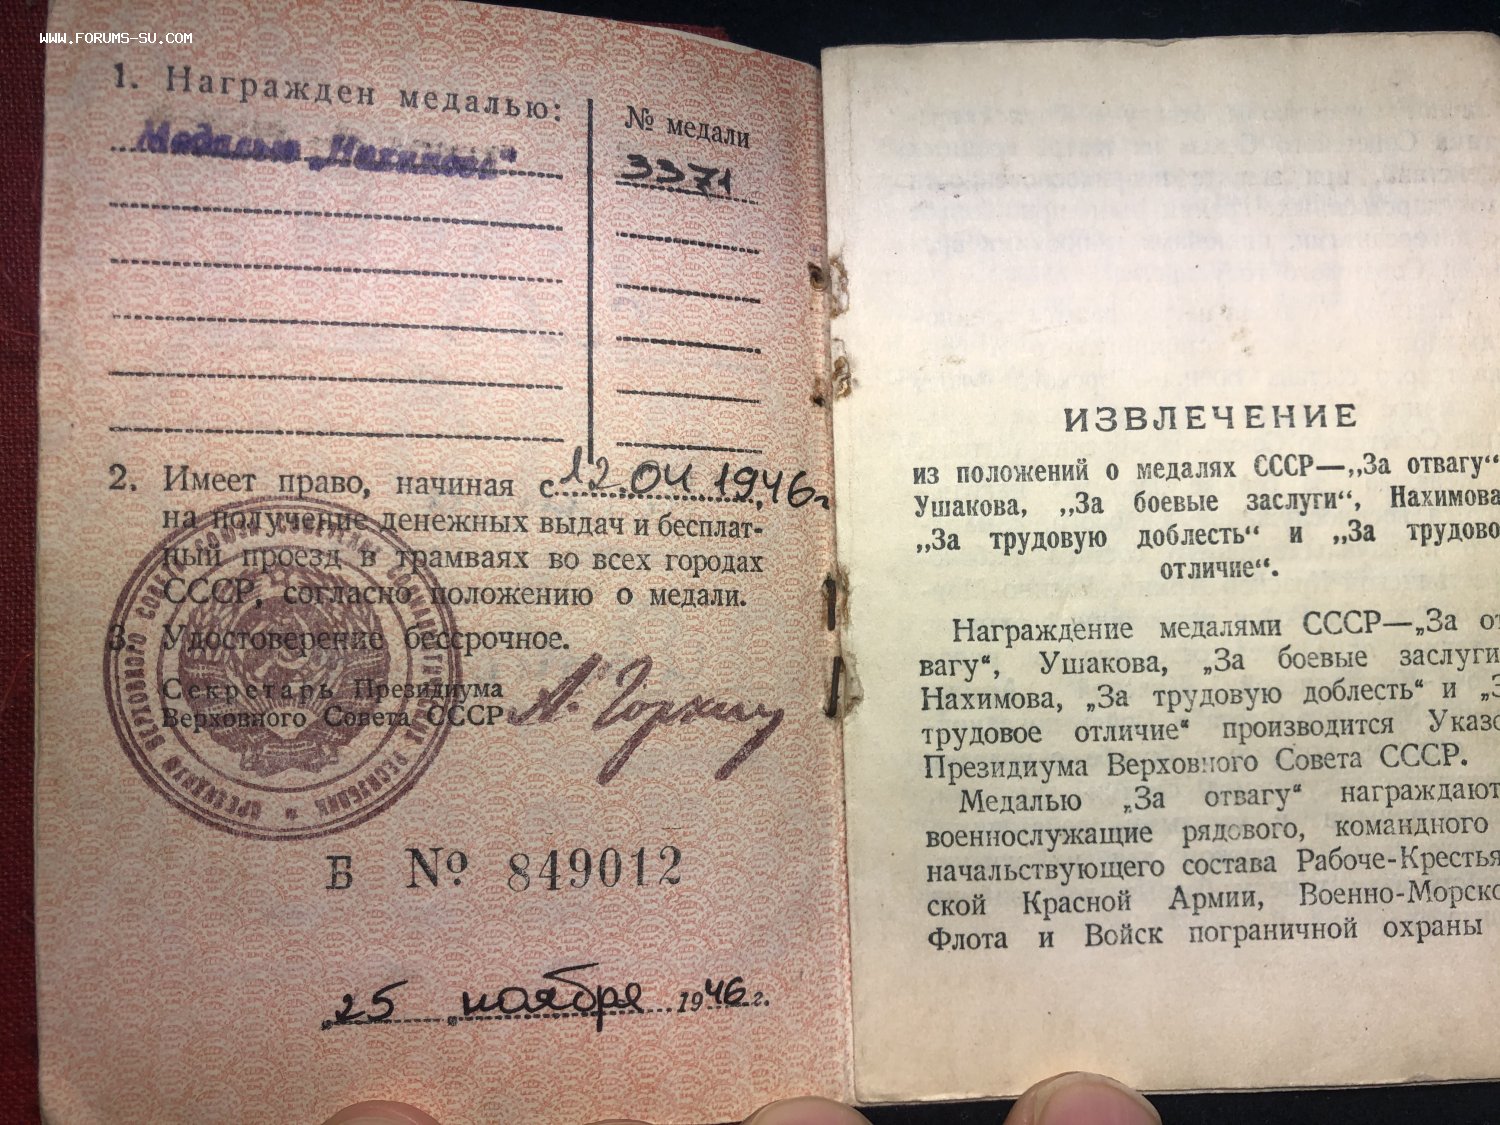 WWW.FORUMS-SU.COM
1. Награжден медалью:
№ медали
Медалью „Нахимова“
3371
2. Имеет право, начиная с 12.04 1946 г
на получение денежных выдач и бесплат-
ный проезд в трамваях во всех городах
СССР, согласно положению о медали.
3. Удостоверение бессрочное.
Секретарь Президиума
Верховного Совета СССР
А. Горкин
Б № 849012
„25 „ ноября 1946 г.
ИЗВЛЕЧЕНИЕ
из положений о медалях СССР—„За отвагу“
Ушакова, „За боевые заслуги“, Нахимова
„За трудовую доблесть“ и „За трудово
отличие“.
Награждение медалями СССР—„За от
вагу“, Ушакова, „За боевые заслуги
Нахимова, „За трудовую доблесть“ и „З
трудовое отличие“ производится Указо
Президиума Верховного Совета СССР.
Медалью „За отвагу“ награждают
военнослужащие рядового, командного
начальствующего состава Рабоче-Крестья
ской Красной Армии, Военно-Морско
Флота и Войск пограничной охраны